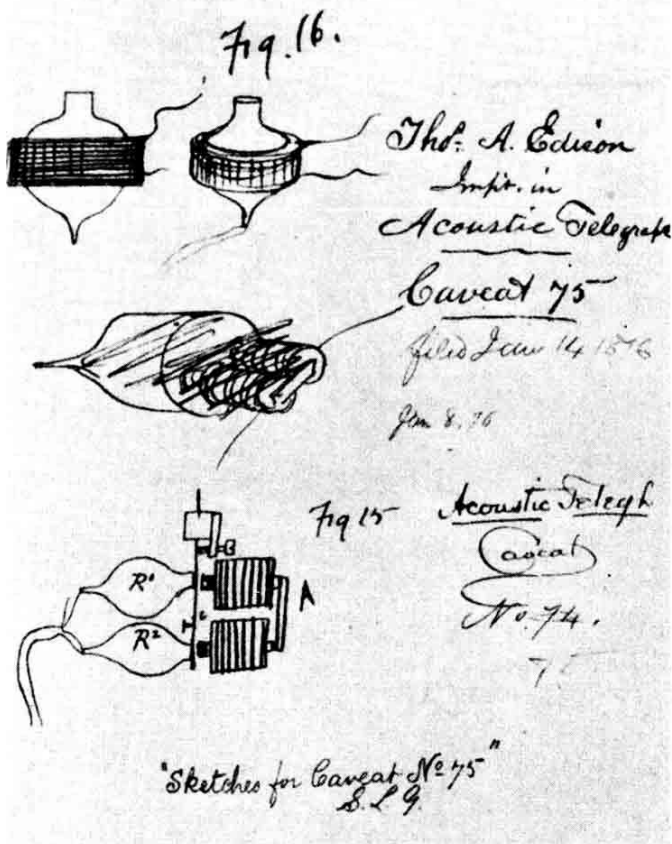 Fig. 16.
Thos. A. Edison
Impt. in
Acoustic Telegraph
Caveat 75
filed Jan 14 1876
Jan 8. 76
Fig 15
Acoustic Telegh
Caveat
No. 74.
75
R¹
A
c
R²
"Sketches for Caveat No 75"
S. L. G.